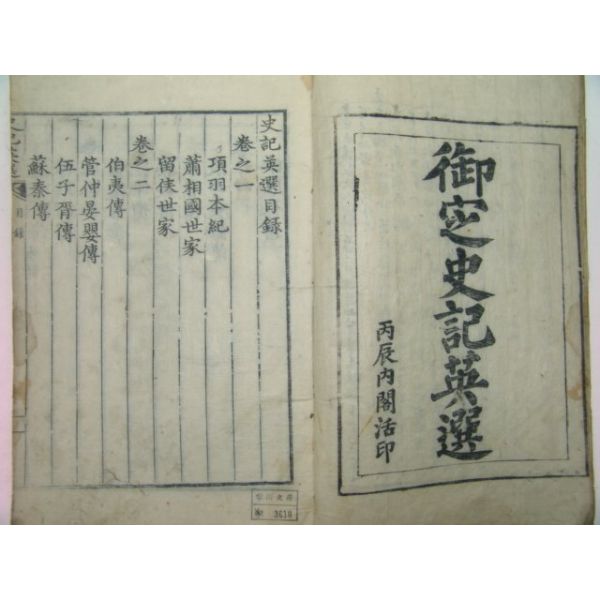 御定史記英選
丙辰內閣活印
史記英選目錄
卷之一
項羽本紀
蕭相國世家
留侯世家
卷之二
伯夷傳
管仲晏嬰傳
伍子胥傳
蘇秦傳
目錄
№ 3619